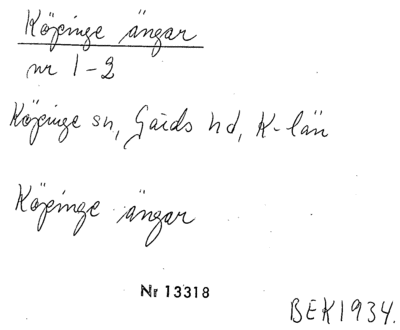 Köpinge ängar
nr 1-2
Köpinge sn, Gärds hd, K-län
Köpinge ängar
Nr 13318
BEK1934.